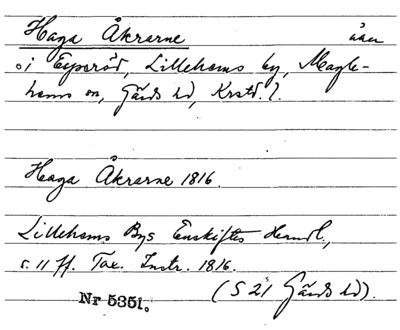 Haga Åkrarne åker
i Esperöd, Lillehems by, Maglehems sn, Gärds hd, Krstd. l.
Haga Åkrarne 1816.
Lillehems Bys Enskiftes Handl.,
s. 11 ff. Tax. Instr. 1816.
(S 21 Gärds hd).
Nr 5351.